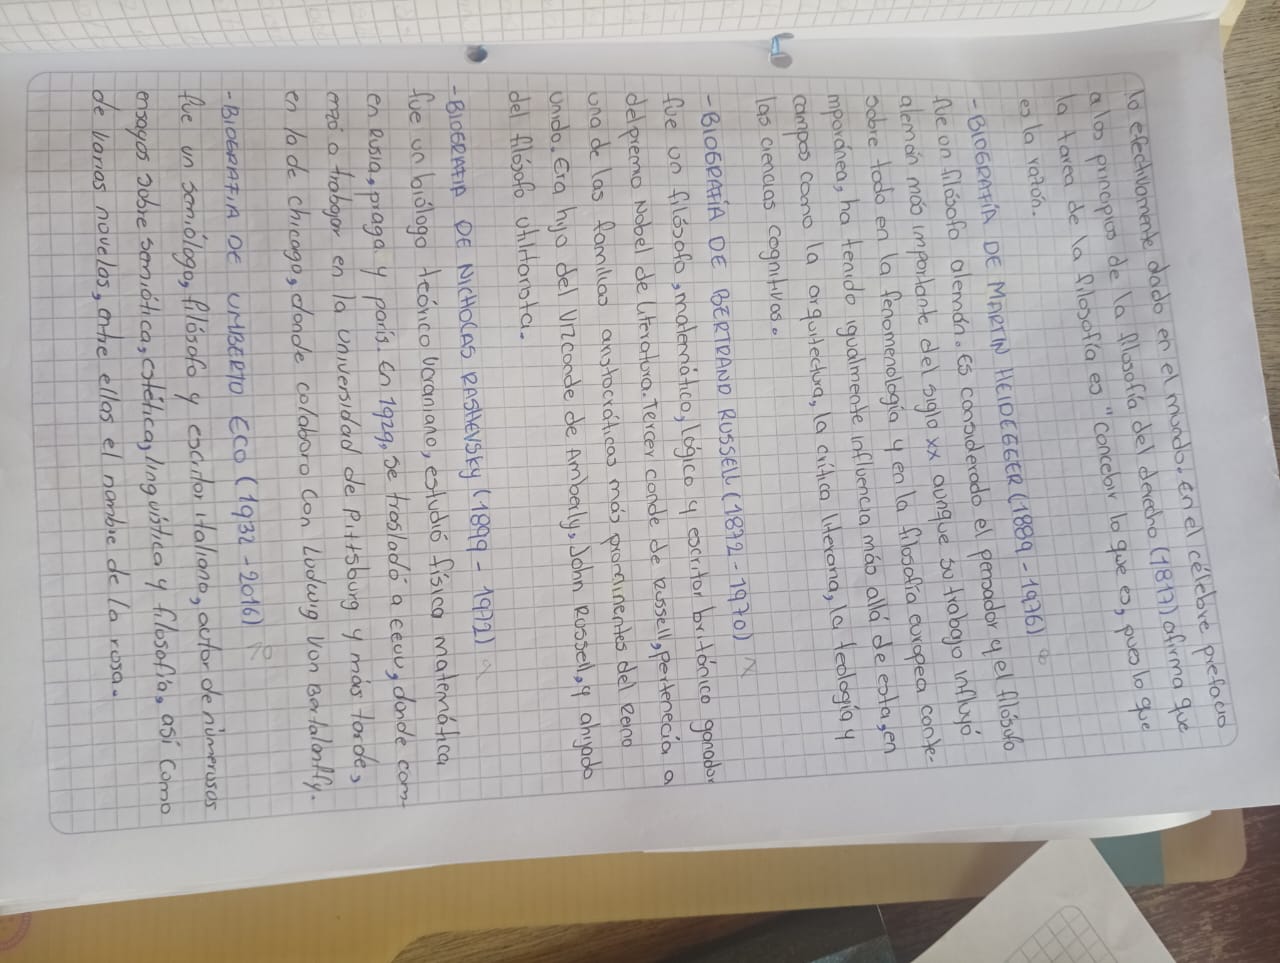 lo efectivamente dado en el mundo. en el célebre prefacio
a los principios de la filosofía del derecho (1817) afirma que
la tarea de la filosofía es "concebir lo que es, pues lo que
es la razón.
-BIOGRAFÍA DE MARTIN HEIDEGGER (1889 - 1976)
fue un filósofo alemán. Es considerado el pensador y el filósofo
alemán más importante del siglo XX aunque su trabajo influyó
sobre todo en la fenomenología y en la filosofía europea conte-
mporánea, ha tenido igualmente influencia más allá de esta, en
campos como la arquitectura, la crítica literaria, la teología y
las ciencias cognitivas.
-BIOGRAFÍA DE BERTRAND RUSSELL (1872 - 1970)
fue un filósofo, matemático, lógico y escritor británico ganador
del premio Nobel de literatura. Tercer conde de Russell, pertenecía a
una de las familias aristocráticas más prominentes del Reino
Unido. Era hijo del Vizconde de Amberly, John Russell, y ahijado
del filósofo utilitarista.
-BIOGRAFÍA DE NICHOLAS RASHEVSKY (1899 - 1972)
fue un biólogo teórico Ucraniano, estudió física matemática
en Rusia, praga y parís. En 1929, se trasladó a EEUU, donde com-
enzó a trabajar en la universidad de Pittsburg y más tarde,
en la de chicago, donde colaboro con Ludwig Von Bertalanffy.
-BIOGRAFIA DE UMBERTO ECO (1932 - 2016)
fue un semiólogo, filósofo y escritor italiano, autor de númerosos
ensayos sobre semiótica, estética, lingüística y filosofía, así como
de varias novelas, entre ellas el nombre de la rosa.